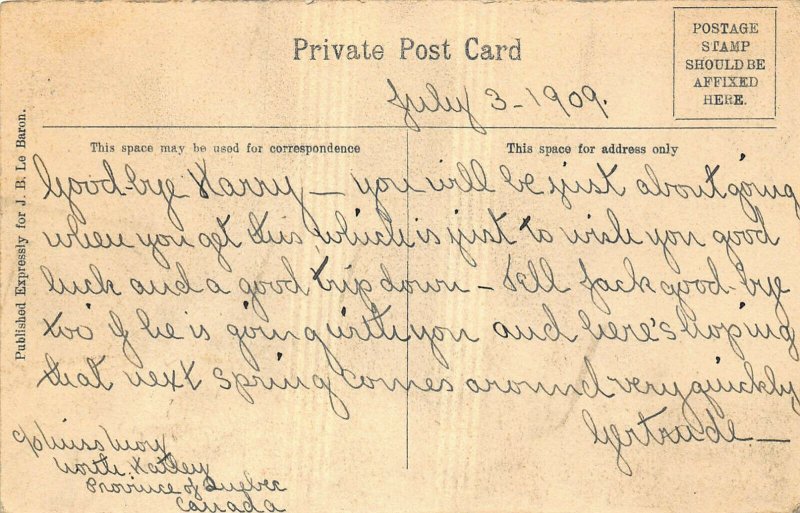 Private Post Card
POSTAGE
STAMP
SHOULD BE
AFFIXED
HERE.
July 3-1909.
Published Expressly for J. B. Le Baron.
This space may be used for correspondence
This space for address only
Good-bye Harry — you will be just about going
when you get this, which is just to wish you good
luck and a good trip down — Tell Jack good-bye
too if he is going with you and here's hoping
that next spring comes around very quickly,
Gertrude —
North Hatley
Province of Quebec
Canada